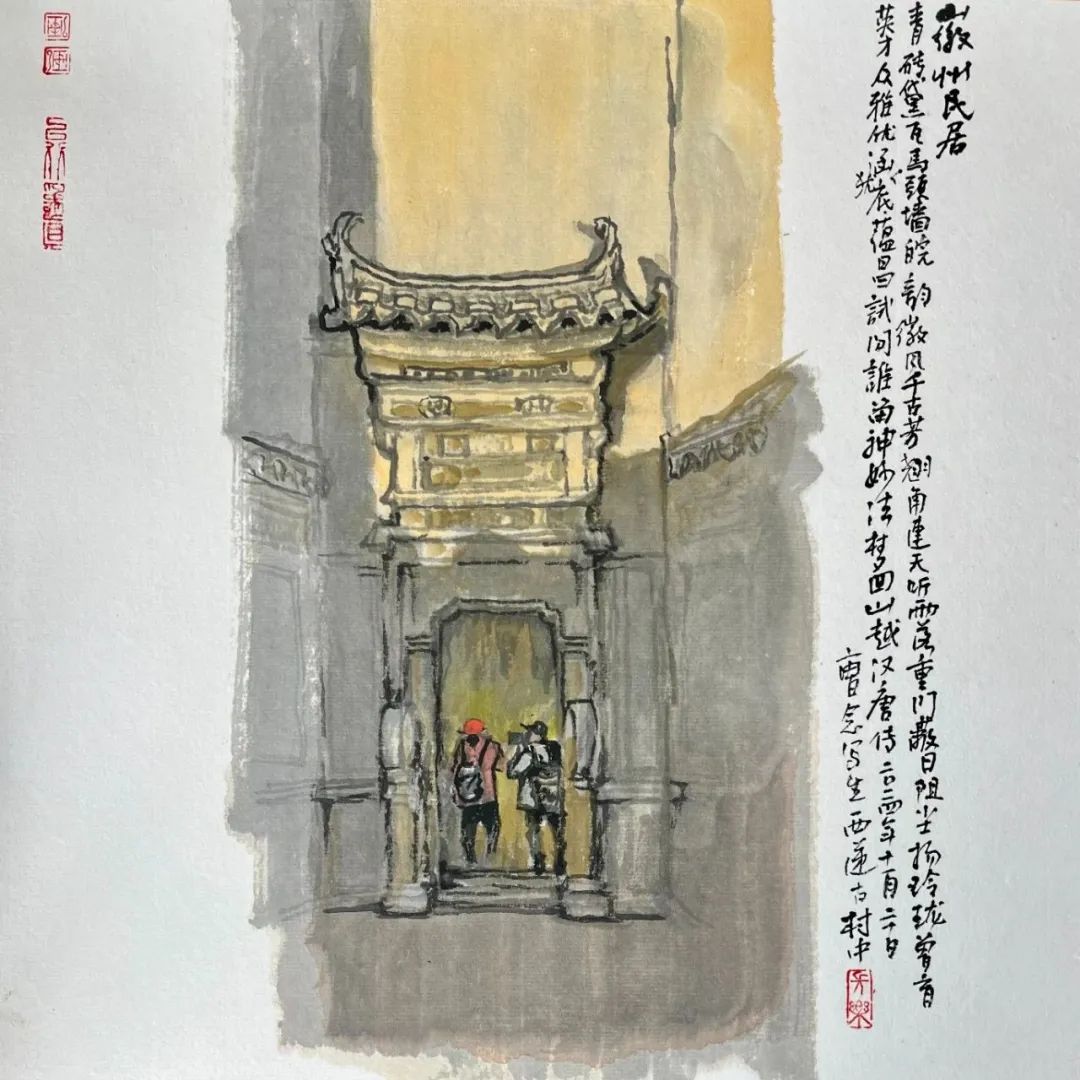 徽州民居
青砖黛瓦馬頭墙皖韵徽风千古芳翘角連天听雨落重门蔽日阻尘扬玲珑曾育
英才众雅优犹涵底蕴昌試问誰留神妙法梦回山越汉唐传二〇二四年十月二十日
写生西递古村中